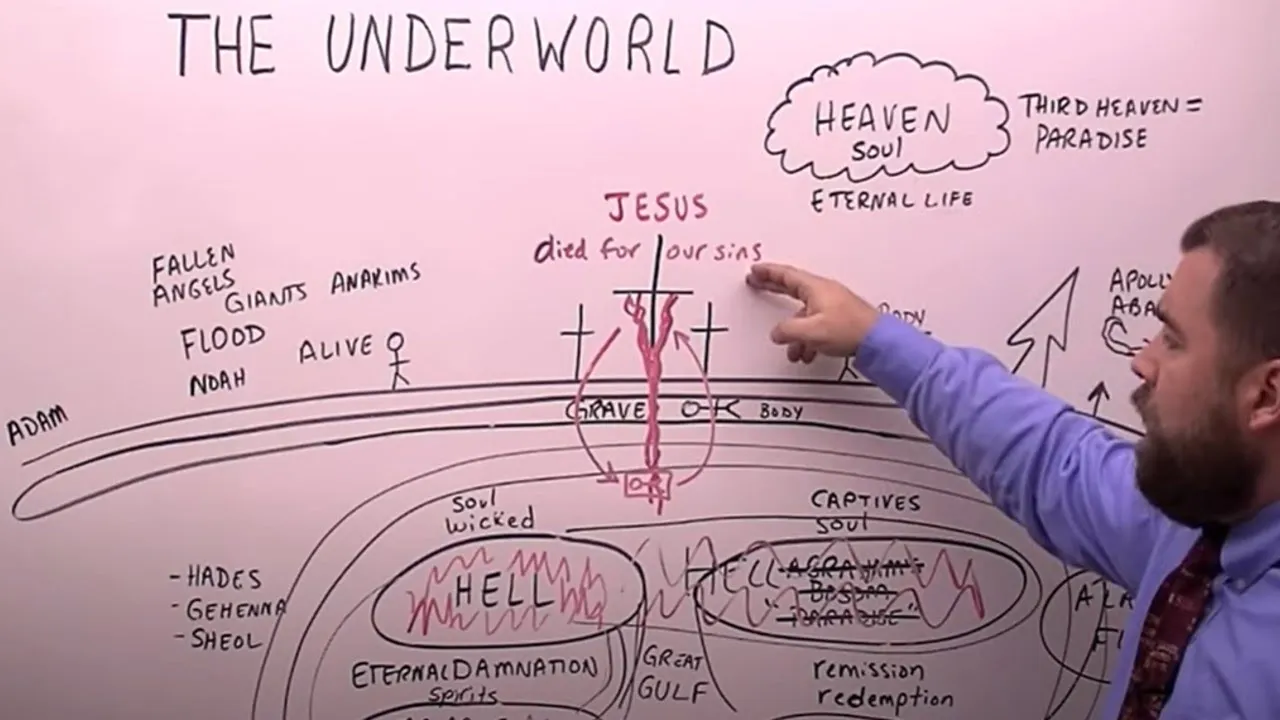 THE UNDERWORLD
HEAVEN
soul
THIRD HEAVEN =
PARADISE
ETERNAL LIFE
JESUS
died for our sins
FALLEN
ANGELS
GIANTS ANAKIMS
FLOOD
NOAH
ALIVE
ADAM
BODY
GRAVE
BODY
soul
wicked
CAPTIVES
soul
HELL
HELL ABRAHAM'S
BOSOM
"PARADISE"
- HADES
- GEHENNA
- SHEOL
ETERNAL DAMNATION
spirits
GREAT
GULF
remission
redemption